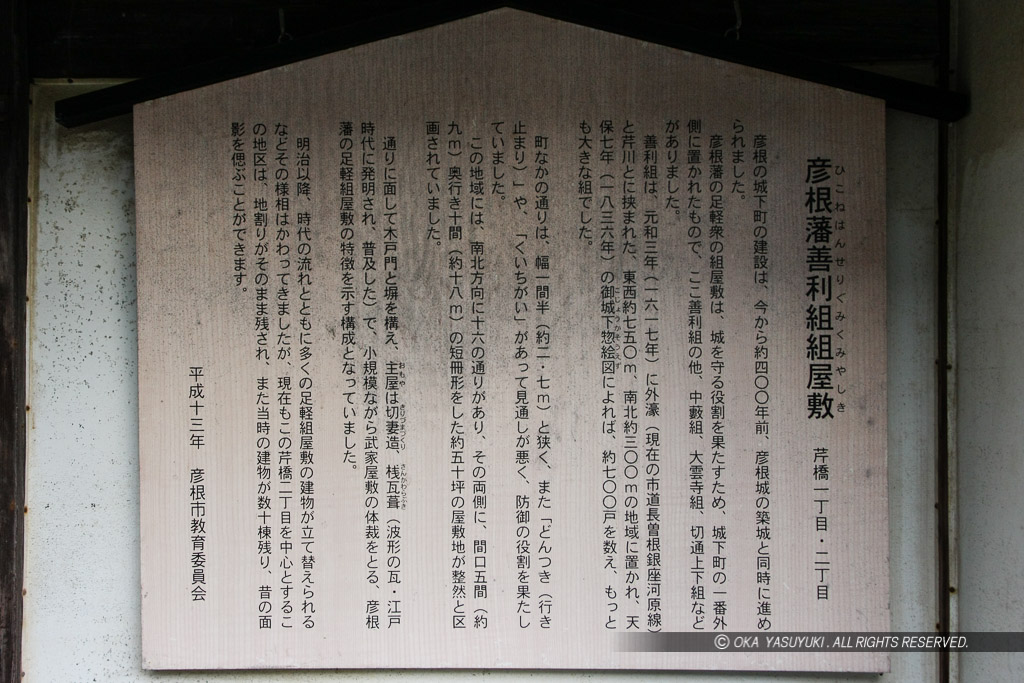 彦根藩善利組組屋敷 芹橋一丁目・二丁目
ひこねはんせりぐみくみやしき
彦根の城下町の建設は、今から約四〇〇年前、彦根城の築城と同時に進め
られました。
彦根藩の足軽衆の組屋敷は、城を守る役割を果たすため、城下町の一番外
側に置かれたもので、ここ善利組の他、中藪組、大雲寺組、切通上下組など
がありました。
善利組は、元和三年（一六一七年）に外濠（現在の市道長曽根銀座河原線）
と芹川とに挟まれた、東西約七五〇ｍ、南北約三〇〇ｍの地域に置かれ、天
保七年（一八三六年）の御城下惣絵図によれば、約七〇〇戸を数え、もっと
も大きな組でした。
町なかの通りは、幅一間半（約二・七ｍ）と狭く、また「どんつき（行き
止まり）」や、「くいちがい」があって見通しが悪く、防御の役割を果たし
ていました。
この地域には、南北方向に十六の通りがあり、その両側に、間口五間（約
九ｍ）奥行き十間（約十八ｍ）の短冊形をした約五十坪の屋敷地が整然と区
画されていました。
通りに面して木戸門と塀を構え、主屋は切妻造、桟瓦葺（波形の瓦・江戸
おもや きりづまづくり さんがわらぶき
時代に発明され、普及した）で、小規模ながら武家屋敷の体裁をとる、彦根
藩の足軽組屋敷の特徴を示す構成となっていました。
明治以降、時代の流れとともに多くの足軽組屋敷の建物が立て替えられる
などその様相はかわってきましたが、現在もこの芹橋二丁目を中心とするこ
の地区は、地割りがそのまま残され、また当時の建物が数十棟残り、昔の面
影を偲ぶことができます。
平成十三年 彦根市教育委員会
© OKA YASUYUKI . ALL RIGHTS RESERVED.